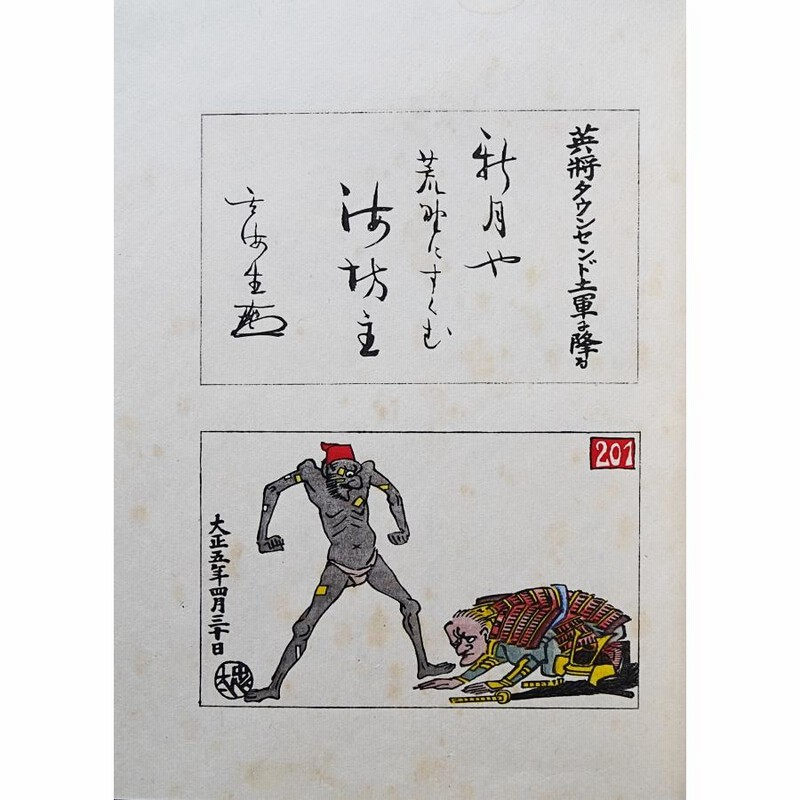 英將タウンセンド土軍に降る
新月や
荒野にすくむ
海坊主
201
大正五年四月三十日